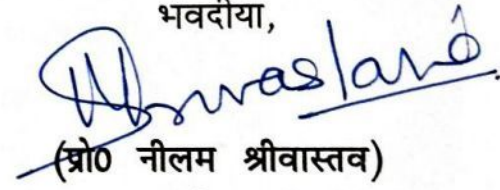 भवदीया,
(प्रो0 नीलम श्रीवास्तव)